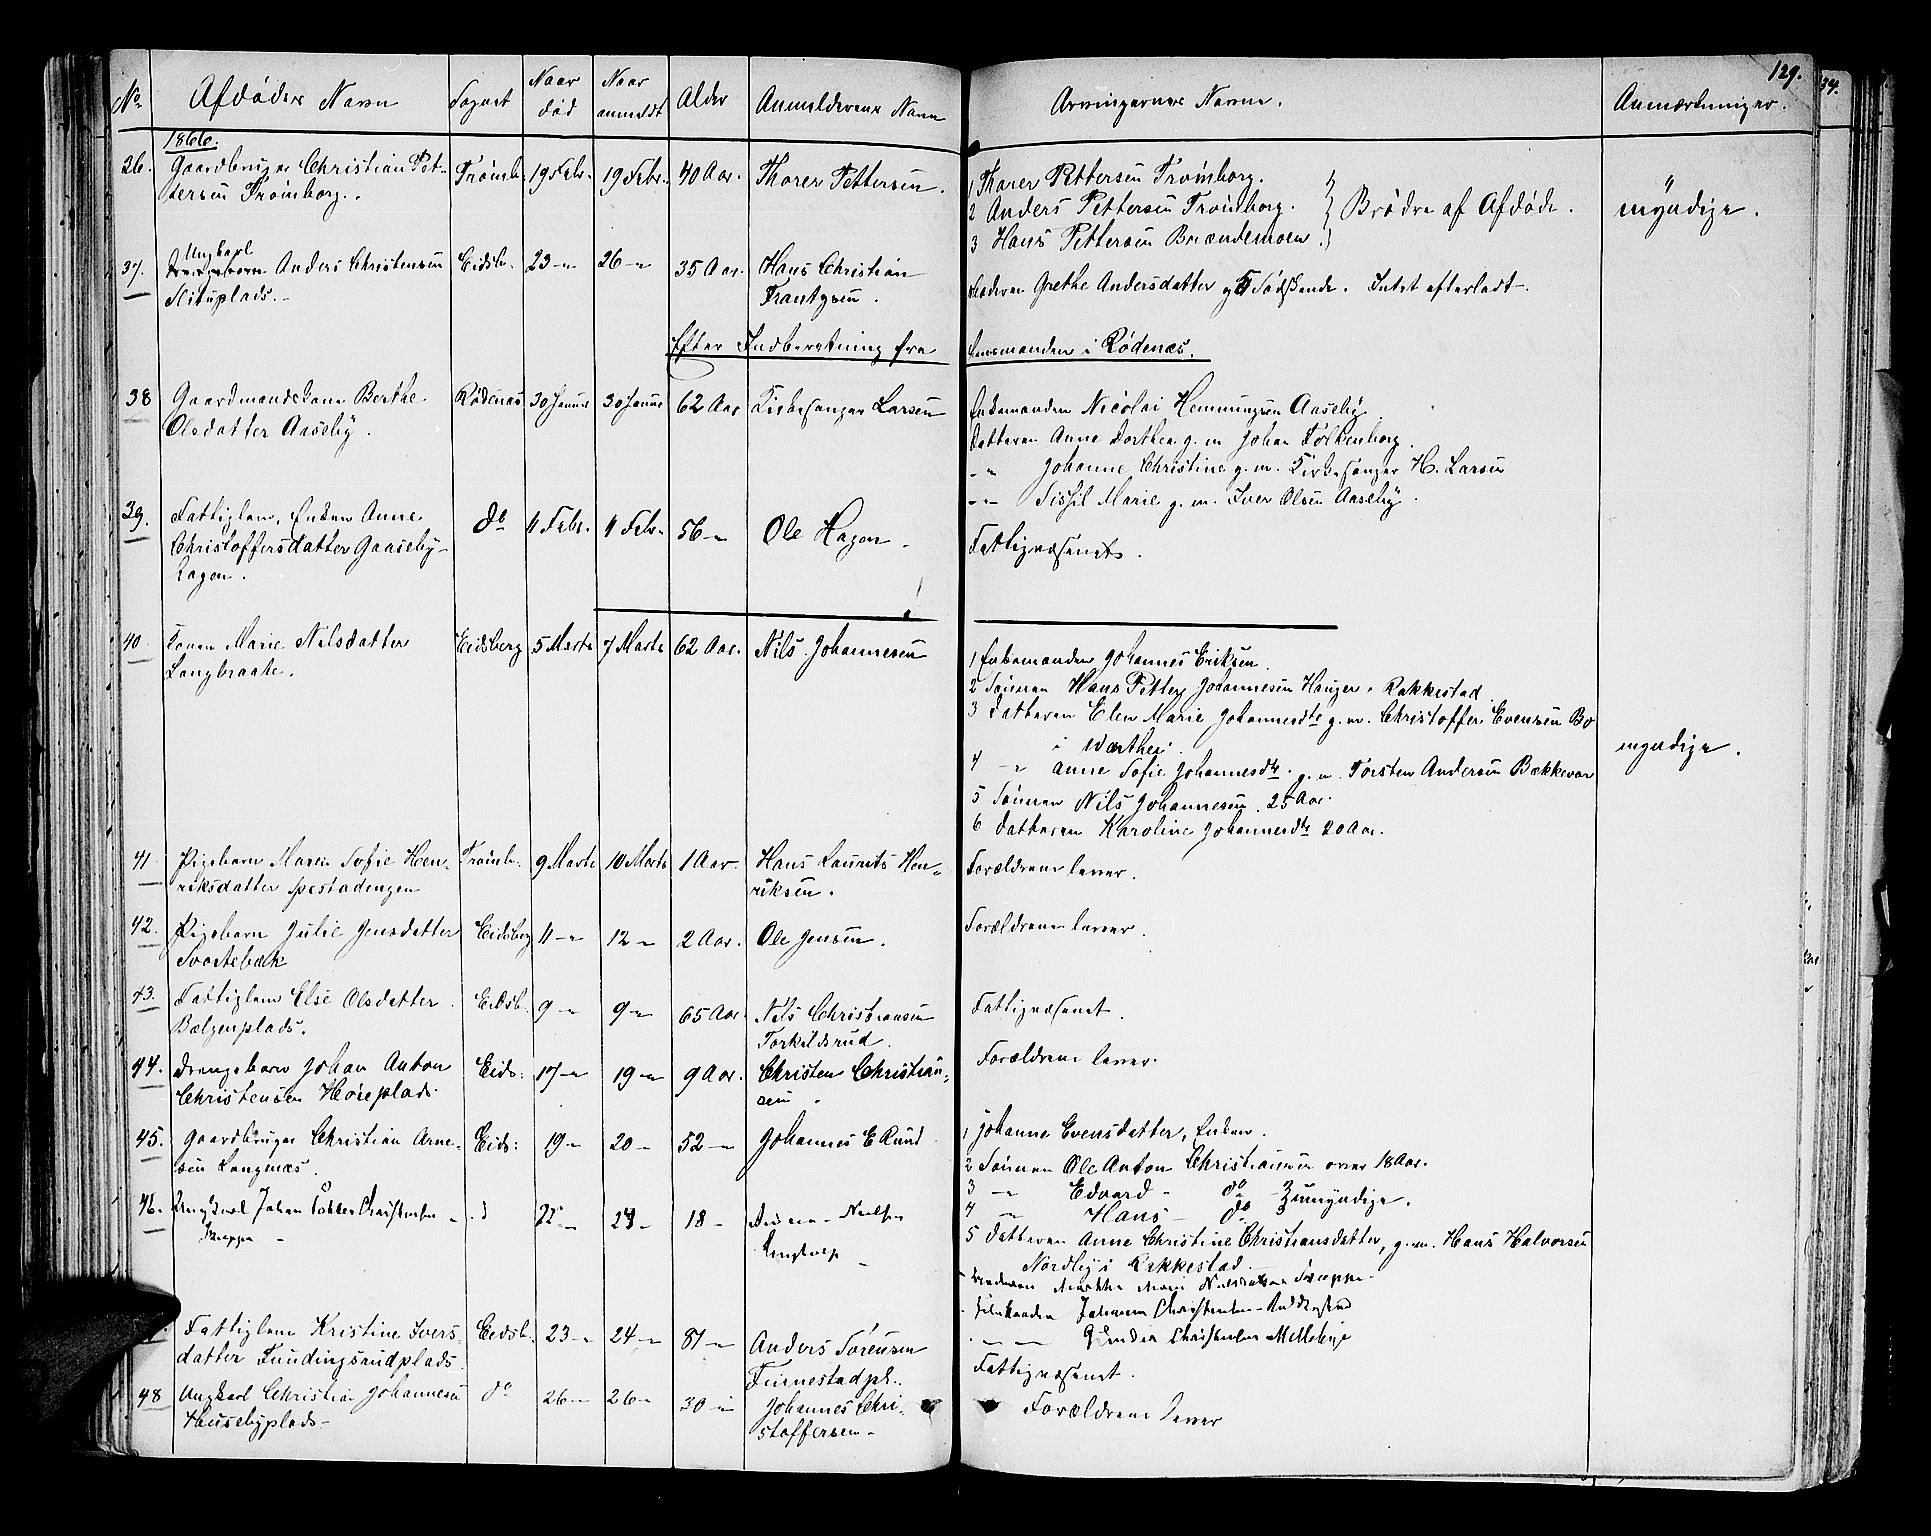 129.
No Afdødes Navn Sognet Naar død Naar anmeldt Alder Anmelderens Navn Arvingernes Navne. Anmærkninger.
1866.
36. Gaardbruger Christian Pet- Trømb. 19 Febr. 19 Febr. 40 Aar. Thorer Pettersen. 1 Thorer Pettersen Trømborg.
tersen Trømborg. 2 Anders Pettersen Trømborg. Brødre af Afdøde. myndige.
3 Hans Pettersen Brændemoen.
Ungkarl
37. Anders Christensen Eidsb. 23 - 26 - 35 Aar. Hans Christian Moderen Grethe Andersdatter og 5 Sødskende. Intet efterladt.
Frantzsen.
Efter Indberetning fra Lensmanden i Rødenæs.
38 Gaardmandskone Berthe Rødenæs 30 Januar 30 Januar 62 Aar Kirkesanger Larsen Enkemanden Nicolai Hemmingsen Aaseby
Olsdatter Aaseby. Datteren Anne Dorthea g. m. Johan Folkenborg.
- " Johanne Christine g. m. Kirkesanger H. Larsen
- " - Sissil Marie g. m. Iver Olsen Aaseby.
39. Fattiglem, Enken Anne do 11 Febr. 11 Febr. 56 - Ole Hagen. Fattigvæsenet.
Christoffersdatter Gaaseby-
hagen.
40. Konen Marie Nilsdatter Eidsberg 5 Marts 7 Marts 62 Aar. Nils Johannesen 1 Enkemanden Johannes Eriksen.
Langbraate. 2 Sønnen Hans Petter Johannesen Hauger i Rakkestad
3 Datteren Elen Marie Johannesdtr g. m. Christoffer Evensen Bø
i
4 - " Anne Sofie Johannesdtr. g. m. Torsten Andersen Bækkevar myndige.
5 Sønnen Nils Johannesen 25 Aar.
6 Datteren Karoline Johannesdtr 20 Aar.
41. Pigebarn Maren Sofie Hen- Trømb. 9 Marts 10 Marts 1 Aar. Hans Laurits Hen- Forældrene lever.
riksdatter riksen.
42. Pigebarn Julie Jensdatter Eidsberg 11 - 12 - 2 Aar. Ole Jensen. Forældrene lever.
Svartebæk
43. Fattiglem Else Olsdatter Eidsb. 9 - 9 - 65 Aar Nils Christiansen Fattigvæsenet.
Bælgenplads. Torkildsrud.
44. Drengebarn Johan Anton Eids: 17 - 19 - 9 Aar. Christen Christian- Forældrene lever.
Christensen Høieplads. sen
45. Gaardbruger Christian Arne- Eids: 19 - 20 - 52 - Johannes E Ruud 1 Johanne Evensdatter, Enken.
sen Langnæs. 2 Sønnen Ole Anton Christiansen over 18 Aar.
3 - " Edvard - do - umyndige.
4 - " Hans - do
5 Datteren Anne Christine Christiansdatter, g. m. Hans Halvorsen
Nordby i Rakkestad
46. Ungkarl Johan Petter Christensen 22 - 24 - 18 -
47. Fattiglem Kristine Ivers- Eidsb. 23 - 24 - 87 - Anders Sørensen Fattigvæsenet.
datter Fundingsrudplads. Furnestadpl.
48 Ungkarl Christian Johannesen do 26 - 26 - 30 - Johannes Chri- Forældrene lever
Husebyplads - stoffersen -